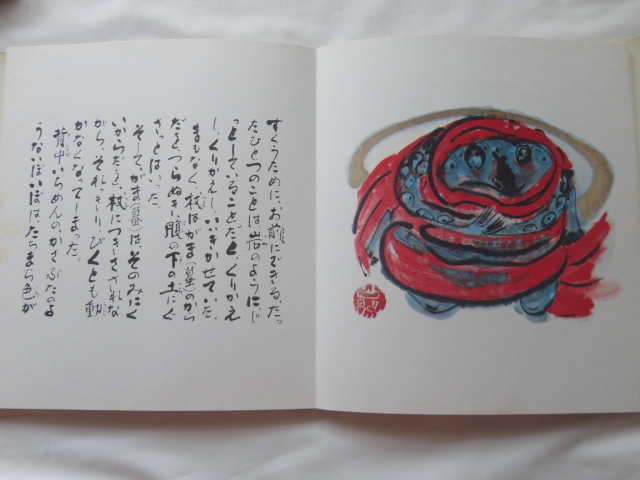 すくうために、お前にできる、たっ
たひとつのことは岩のようにじ
っとしていることだと、くりかえ
し、くりかえし、いいきかせていた。
まもなく、杙はがま(蟇)のから
だを、つらぬき、腹の下の土にぐ
さっとはいった。
そして、がま(蟇)は、そのみにく
いからだを、杙につきさされな
がら、それきり、びくとも動
かなくなってしまった。
背中いちめんのかさぶたのよ
うないぼいぼは、たちまち色が